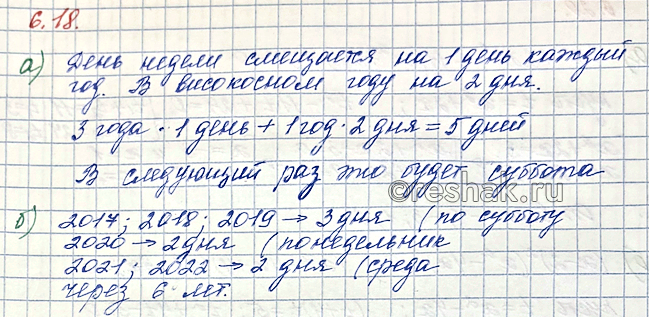 6.18.
а) День недели смещается на 1 день каждый
год. В високосном году на 2 дня.
3 года · 1 день + 1 год · 2 дня = 5 дней
В следующий раз это будет суббота
©reshak.ru
б) 2017; 2018; 2019 → 3 дня (по субботу
2020 → 2 дня (понедельник
2021; 2022 → 2 дня (среда
через 6 лет.